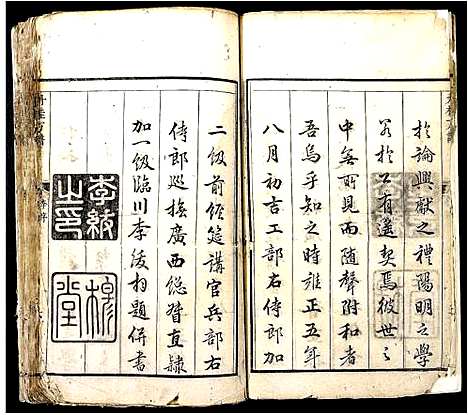 於論興獻之禮陽明之學
若於公有遙契焉彼世之
中無所見而隨聲附和者
吾烏乎知之時雍正五年
八月初吉工部右侍郎加
二級前經筵講官兵部右
侍郎巡撫廣西總督直隸
加一級臨川李紱拜題併書
李紱之印
穆堂